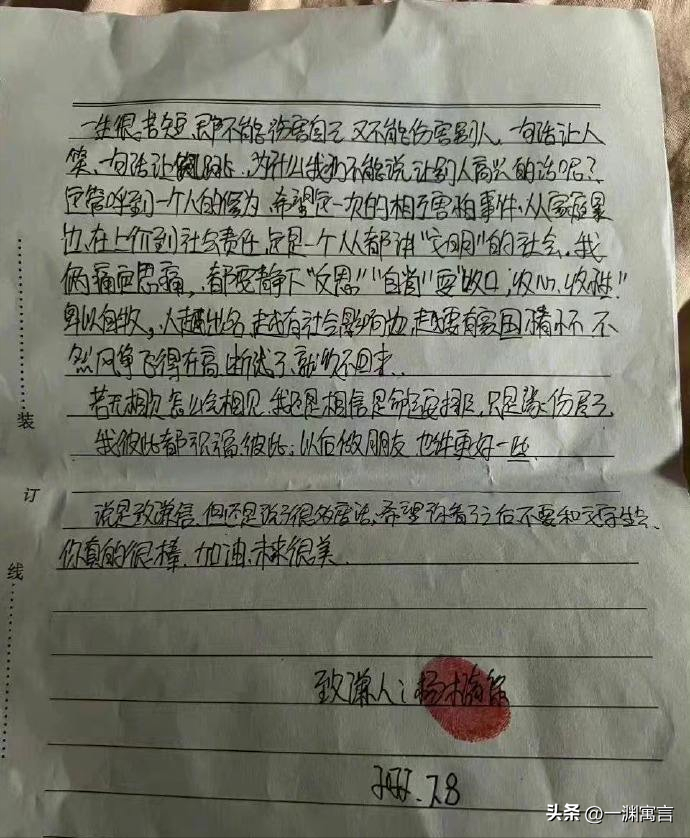 一生很短,即不能伤害自己 又不能伤害别人,一句话让人
笑、一句话让 跳,为什么我们不能说让别人高兴的话呢?
这 到一个人的 为,希望这一次的相互 事件,从家庭
边,在上 到社会责任,这是一个人人都讲“文明”的社会。我
俩痛定思痛,都要静下“反思”“自省”要“收口;收心、收性”
卑以自牧。人越出名,越有社会影响 ,越要有家国情怀 不
然风筝飞得在高,断线了,就收不回来..
若无相欠怎么会相见,我还是相信是 安排,只是缘份 了,
我彼此都祝福彼此;以后做朋友,也许更好一些.
说是致谦信,但还是说了很多 法、希望 看了之后不要和 生 、
你真的很棒,加油,未来很美.
致谦人:杨
7.8
装
订
线
头条 @一渊寓言